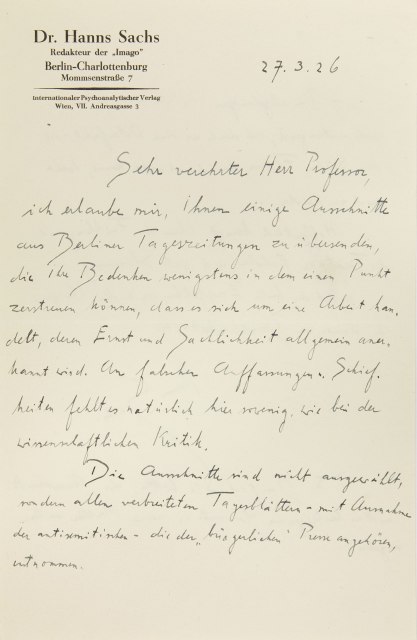 Dr. Hanns Sachs
Redakteur der „Imago"
Berlin-Charlottenburg
Mommsenstraße 7
Internationaler Psychoanalytischer Verlag
Wien, VII. Andreasgasse 3
27.3.26
Sehr verehrter Herr Professor,
ich erlaube mir, Ihnen einige Ausschnitte
aus Berliner Tageszeitungen zu übersenden,
die Ihr Bedenken wenigstens in dem einen Punkt
zerstreuen können, dass es sich um eine Arbeit han-
delt, deren Ernst und Sachlichkeit allgemein aner-
kannt wird. An falschen Auffassungen u. Schief-
heiten fehlt es natürlich hier sowenig, wie bei der
wissenschaftlichen Kritik.
Die Ausschnitte sind nicht ausgewählt,
sondern allen verbreiteten Tagesblättern - mit Ausnahme
der antisemitischen - die der „bürgerlichen" Presse angehören,
entnommen.